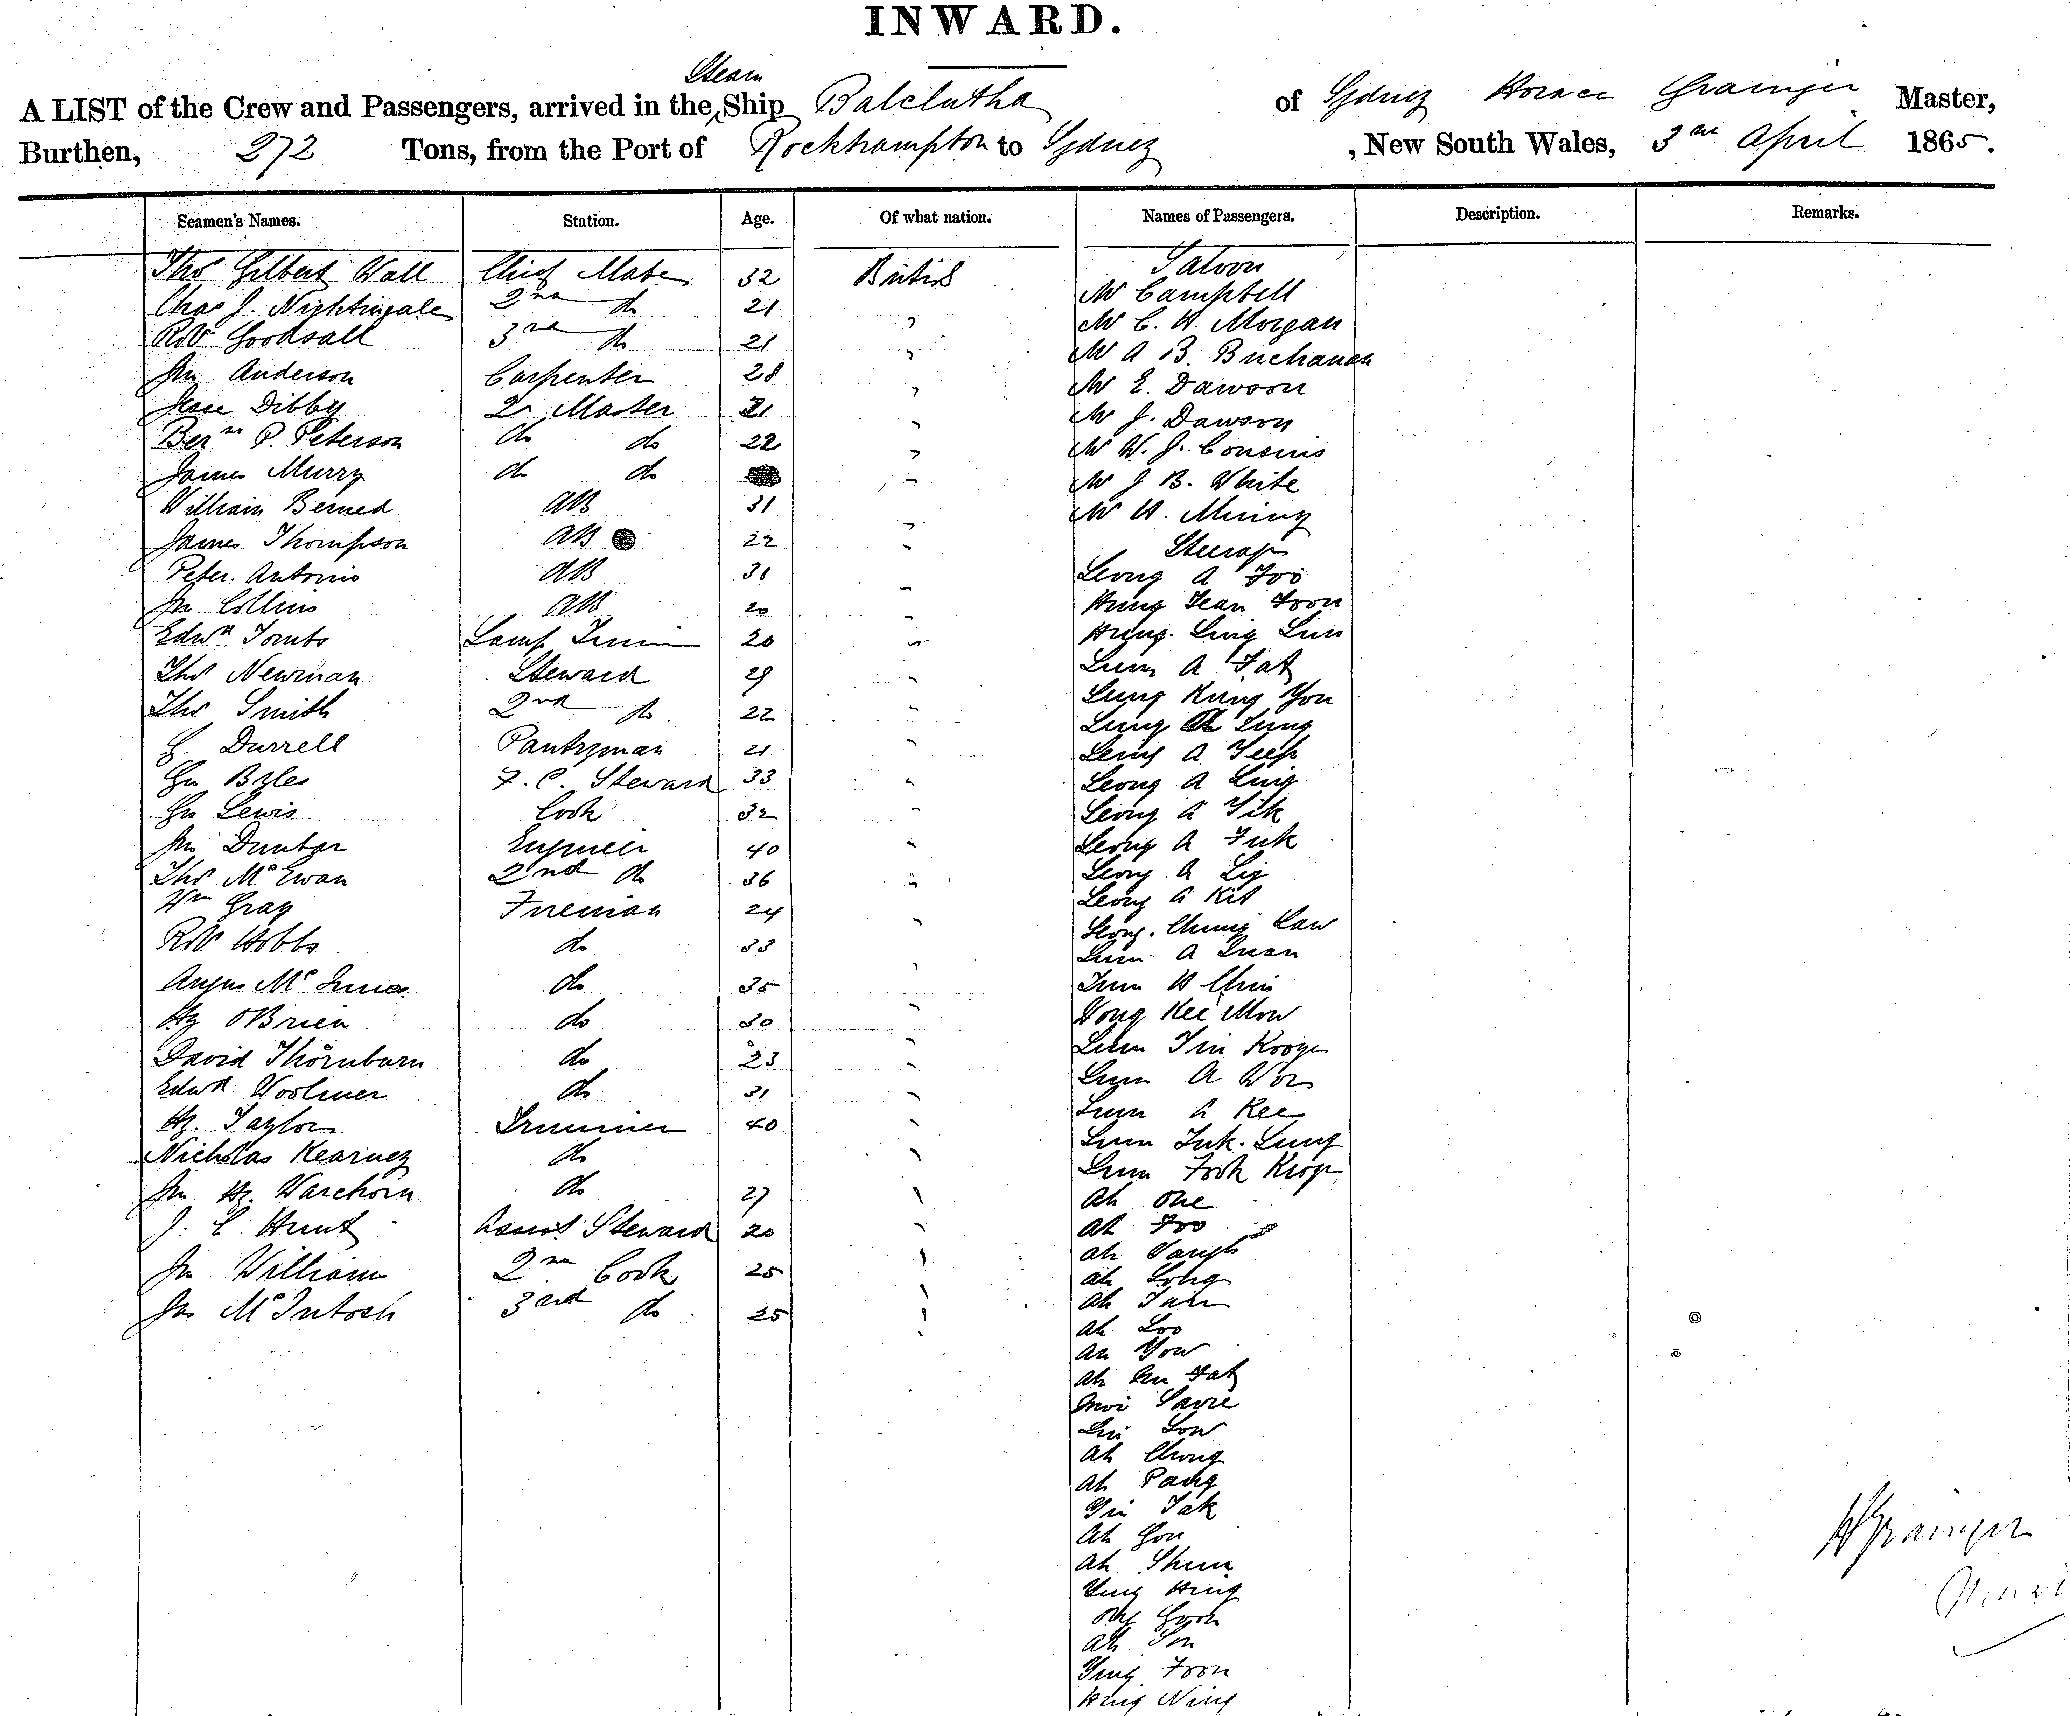 INWARD.
Steam
A LIST of the Crew and Passengers, arrived in the Ship Balclutha of Sydney Horace Grainger Master,
Burthen, 272 Tons, from the Port of Rockhampton to Sydney, New South Wales, 3rd April 1865.
Seamen's Names. Station. Age. Of what nation. Names of Passengers. Description. Remarks.
Saloon
Thos Gilbert Wall Chief Mate 32 British Mr Campbell
Chas J. Nightingale 2nd do 21 " Mr C. H. Morgan
Robt Goodsall 3rd do 21 " Mr A B. Buchanan
Jn Anderson Carpenter 28 " Mr E. Dawson
Dibby Qr Master 21 " Mr J. Dawson
P. Peterson do do 22 " Mr W. J. Cousins
James Murry do do " Mr J B. White
William Berned AB 31 " Mr H.
James Thompson AB 22 " Steerage
Peter Antonio AB 31 " Leong A Foo
Jn Collins AB 20 " Hung Tean Foon
Edwd Tombs Lamp 20 " Hung Ling Lun
Thos Newman Steward 29 " Lum A Fat
Thos Smith 2nd do 22 " Lung Kung You
Durrell Pantryman 21 " Lung Ah Lung
Leung A Teep
Geo Byles F. C. Steward 33 " Leong A Ling
Geo Lewis Cook 32 " Leong A Tik
Jn Dunbar Engineer 40 " Leong A Fuk
Thos McEwan 2nd do 36 " Leong A Lig
Wm Gray Fireman 24 " Leong A Kit
Leong Chung Law
Robt Hobbs do 33 " Lum A Quan
Angus McInnes do 35 " Chin
Hy OBrien do 30 " Wong Kee Mow
David Thornburn do 23 " Lum Tin Kooy
Edwd Woolmer do 31 " Lum A Won
Hy. Taylor Trimmer 40 " Lum A Kee
Nicholas Kearney do " Lum Tuk Lung
Jn Hy. Warehorn do 27 " Lum Fook
Ah One
J. C Hunt Assist Steward 20 " Ah Foo
Jn William 2nd Cook 25 " Ah
Ah Long
Jn McIntosh 3rd do 25 " Ah Tah
Ah Loo
Ah Yow
Ah Fat
Low
Ah Chong
Ah Pang
Yin Tak
Ah Gou
Ah Shun
Hing
Ah
Foon
Ning
H Grainger